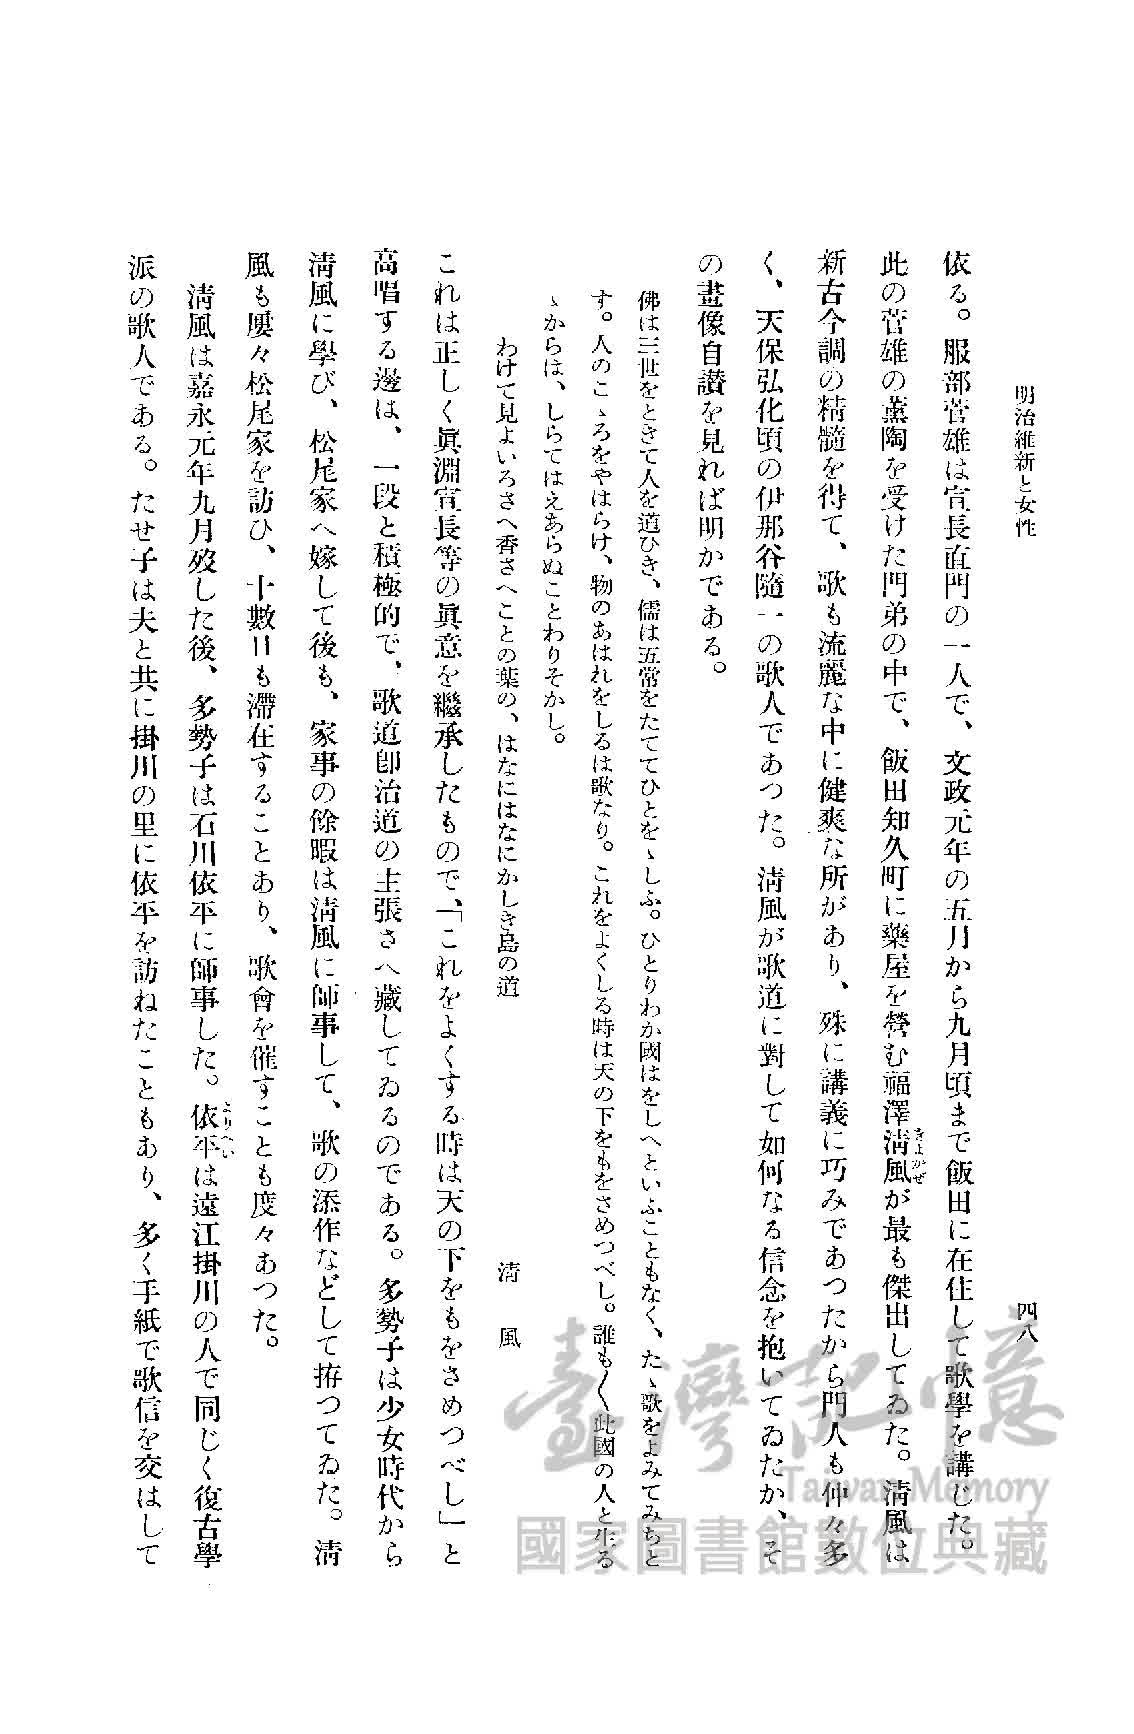 明治維新と女性
四八
依る。服部菅雄は宣長直門の一人で、文政元年の五月から九月頃まで飯田に在住して歌學を講じた。
此の菅雄の薫陶を受けた門弟の中で、飯田知久町に藥屋を營む福澤淸風が最も傑出してゐた。淸風は
きよかぜ
新古今調の精髓を得て、歌も流麗な中に健爽な所があり、殊に講義に巧みであつたから門人も仲々多
く、天保弘化頃の伊那谷隨一の歌人であつた。淸風が歌道に對して如何なる信念を抱いてゐたか、そ
の畫像自讃を見れば明かである。
佛は三世をときて人を道ひき、儒は五常をたててひとをゝしふ。ひとりわか國はをしへといふこともなく、たゝ歌をよみてみちと
す。人のこゝろをやはらけ、物のあはれをしるは歌なり。これをよくしる時は天の下をもをさめつべし。誰も〱此國の人と生る
ゝからは、しらてはえあらぬことわりそかし。
わけて見よいろさへ香さへことの葉の、はなにはなにかしき島の道
淸風
これは正しく眞淵宣長等の眞意を繼承したもので、「これをよくする時は天の下をもをさめつべし」と
高唱する邊は、一段と積極的で、歌道卽治道の主張さへ藏してゐるのである。多勢子は少女時代から
淸風に學び、松尾家へ嫁して後も、家事の餘暇は淸風に師事して、歌の添作などして拵つてゐた。淸
風も屢々松尾家を訪ひ、十數日も滯在することあり、歌會を催すことも度々あつた。
淸風は嘉永元年九月歿した後、多勢子は石川依平に師事した。依平は遠江掛川の人で同じく復古學
よりへい
派の歌人である。たせ子は夫と共に掛川の里に依平を訪ねたこともあり、多く手紙で歌信を交はして
臺灣記憶
Taiwan Memory
國家圖書館數位典藏